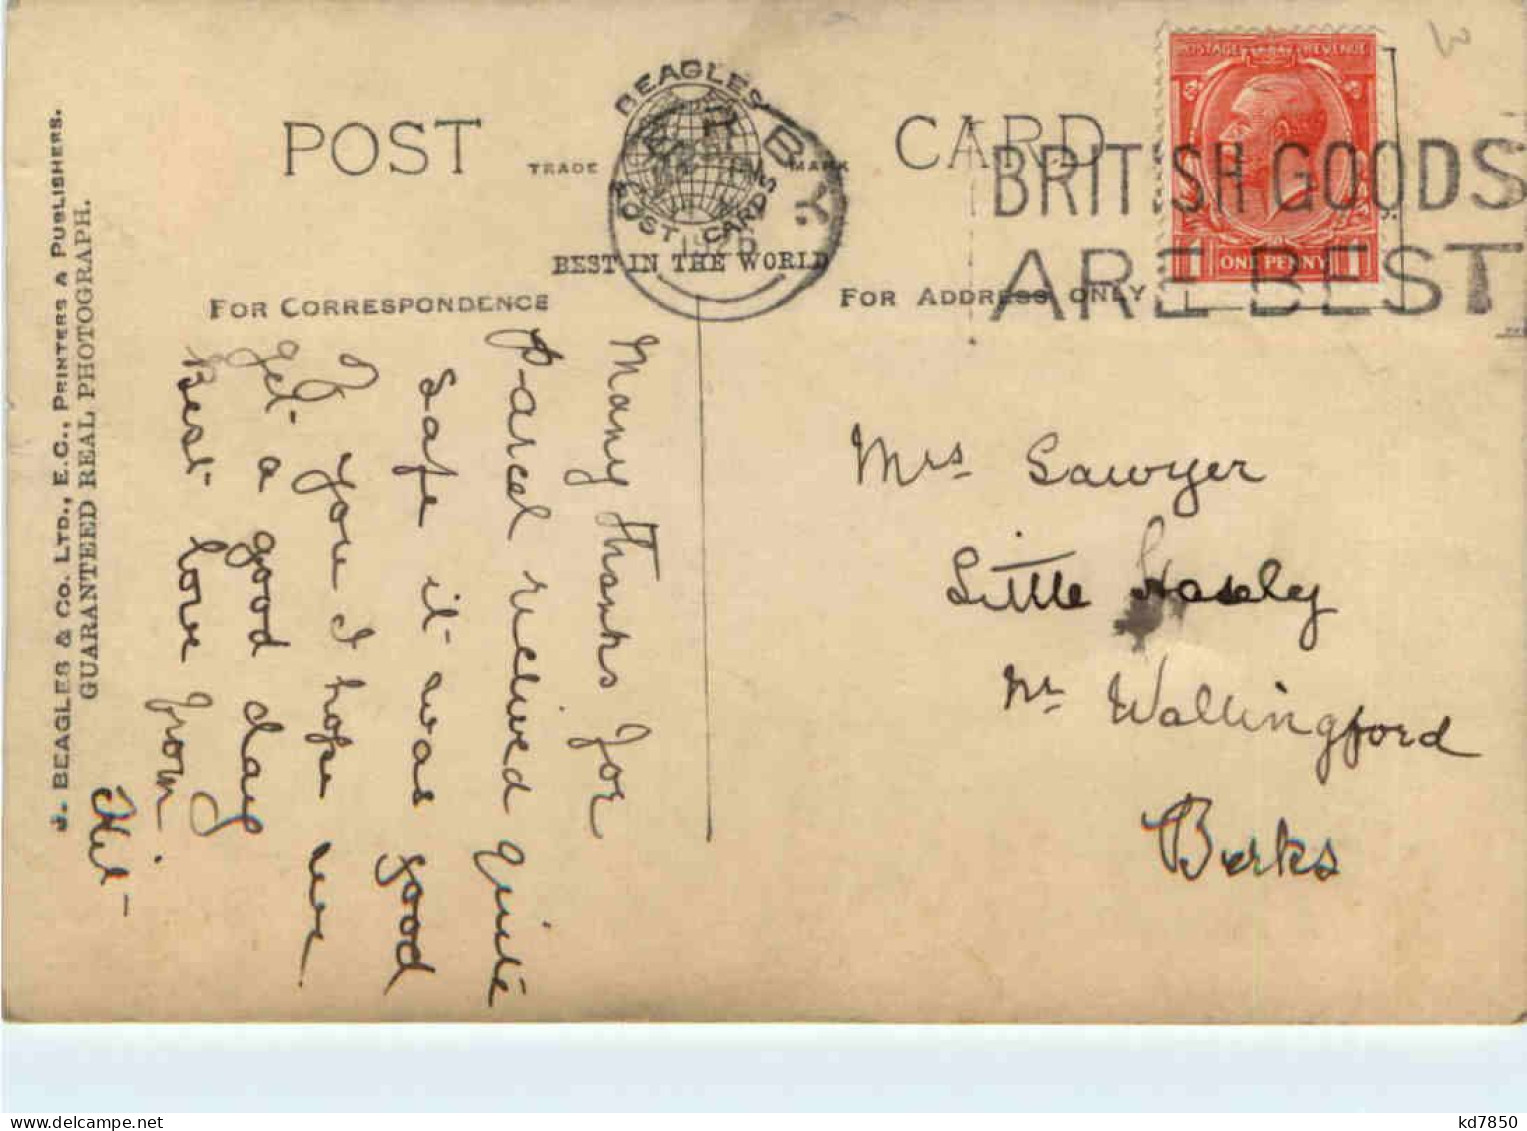 POST CARD
BEAGLES
POST CARDS
TRADE MARK
BEST IN THE WORLD
RBY.
BRITISH GOODS
ARE BEST
POSTAGE REVENUE
1 ONE PENNY 1
FOR CORRESPONDENCE
FOR ADDRESS ONLY
J. BEAGLES & CO. LTD., E.C., PRINTERS & PUBLISHERS.
GUARANTEED REAL PHOTOGRAPH.
Many thanks for
Parcel received quite
safe it was good
of you I hope we
get a good day
Best love from
Mrs Sawyer
Little Hasely
Nr Wallingford
Berks
kd7850